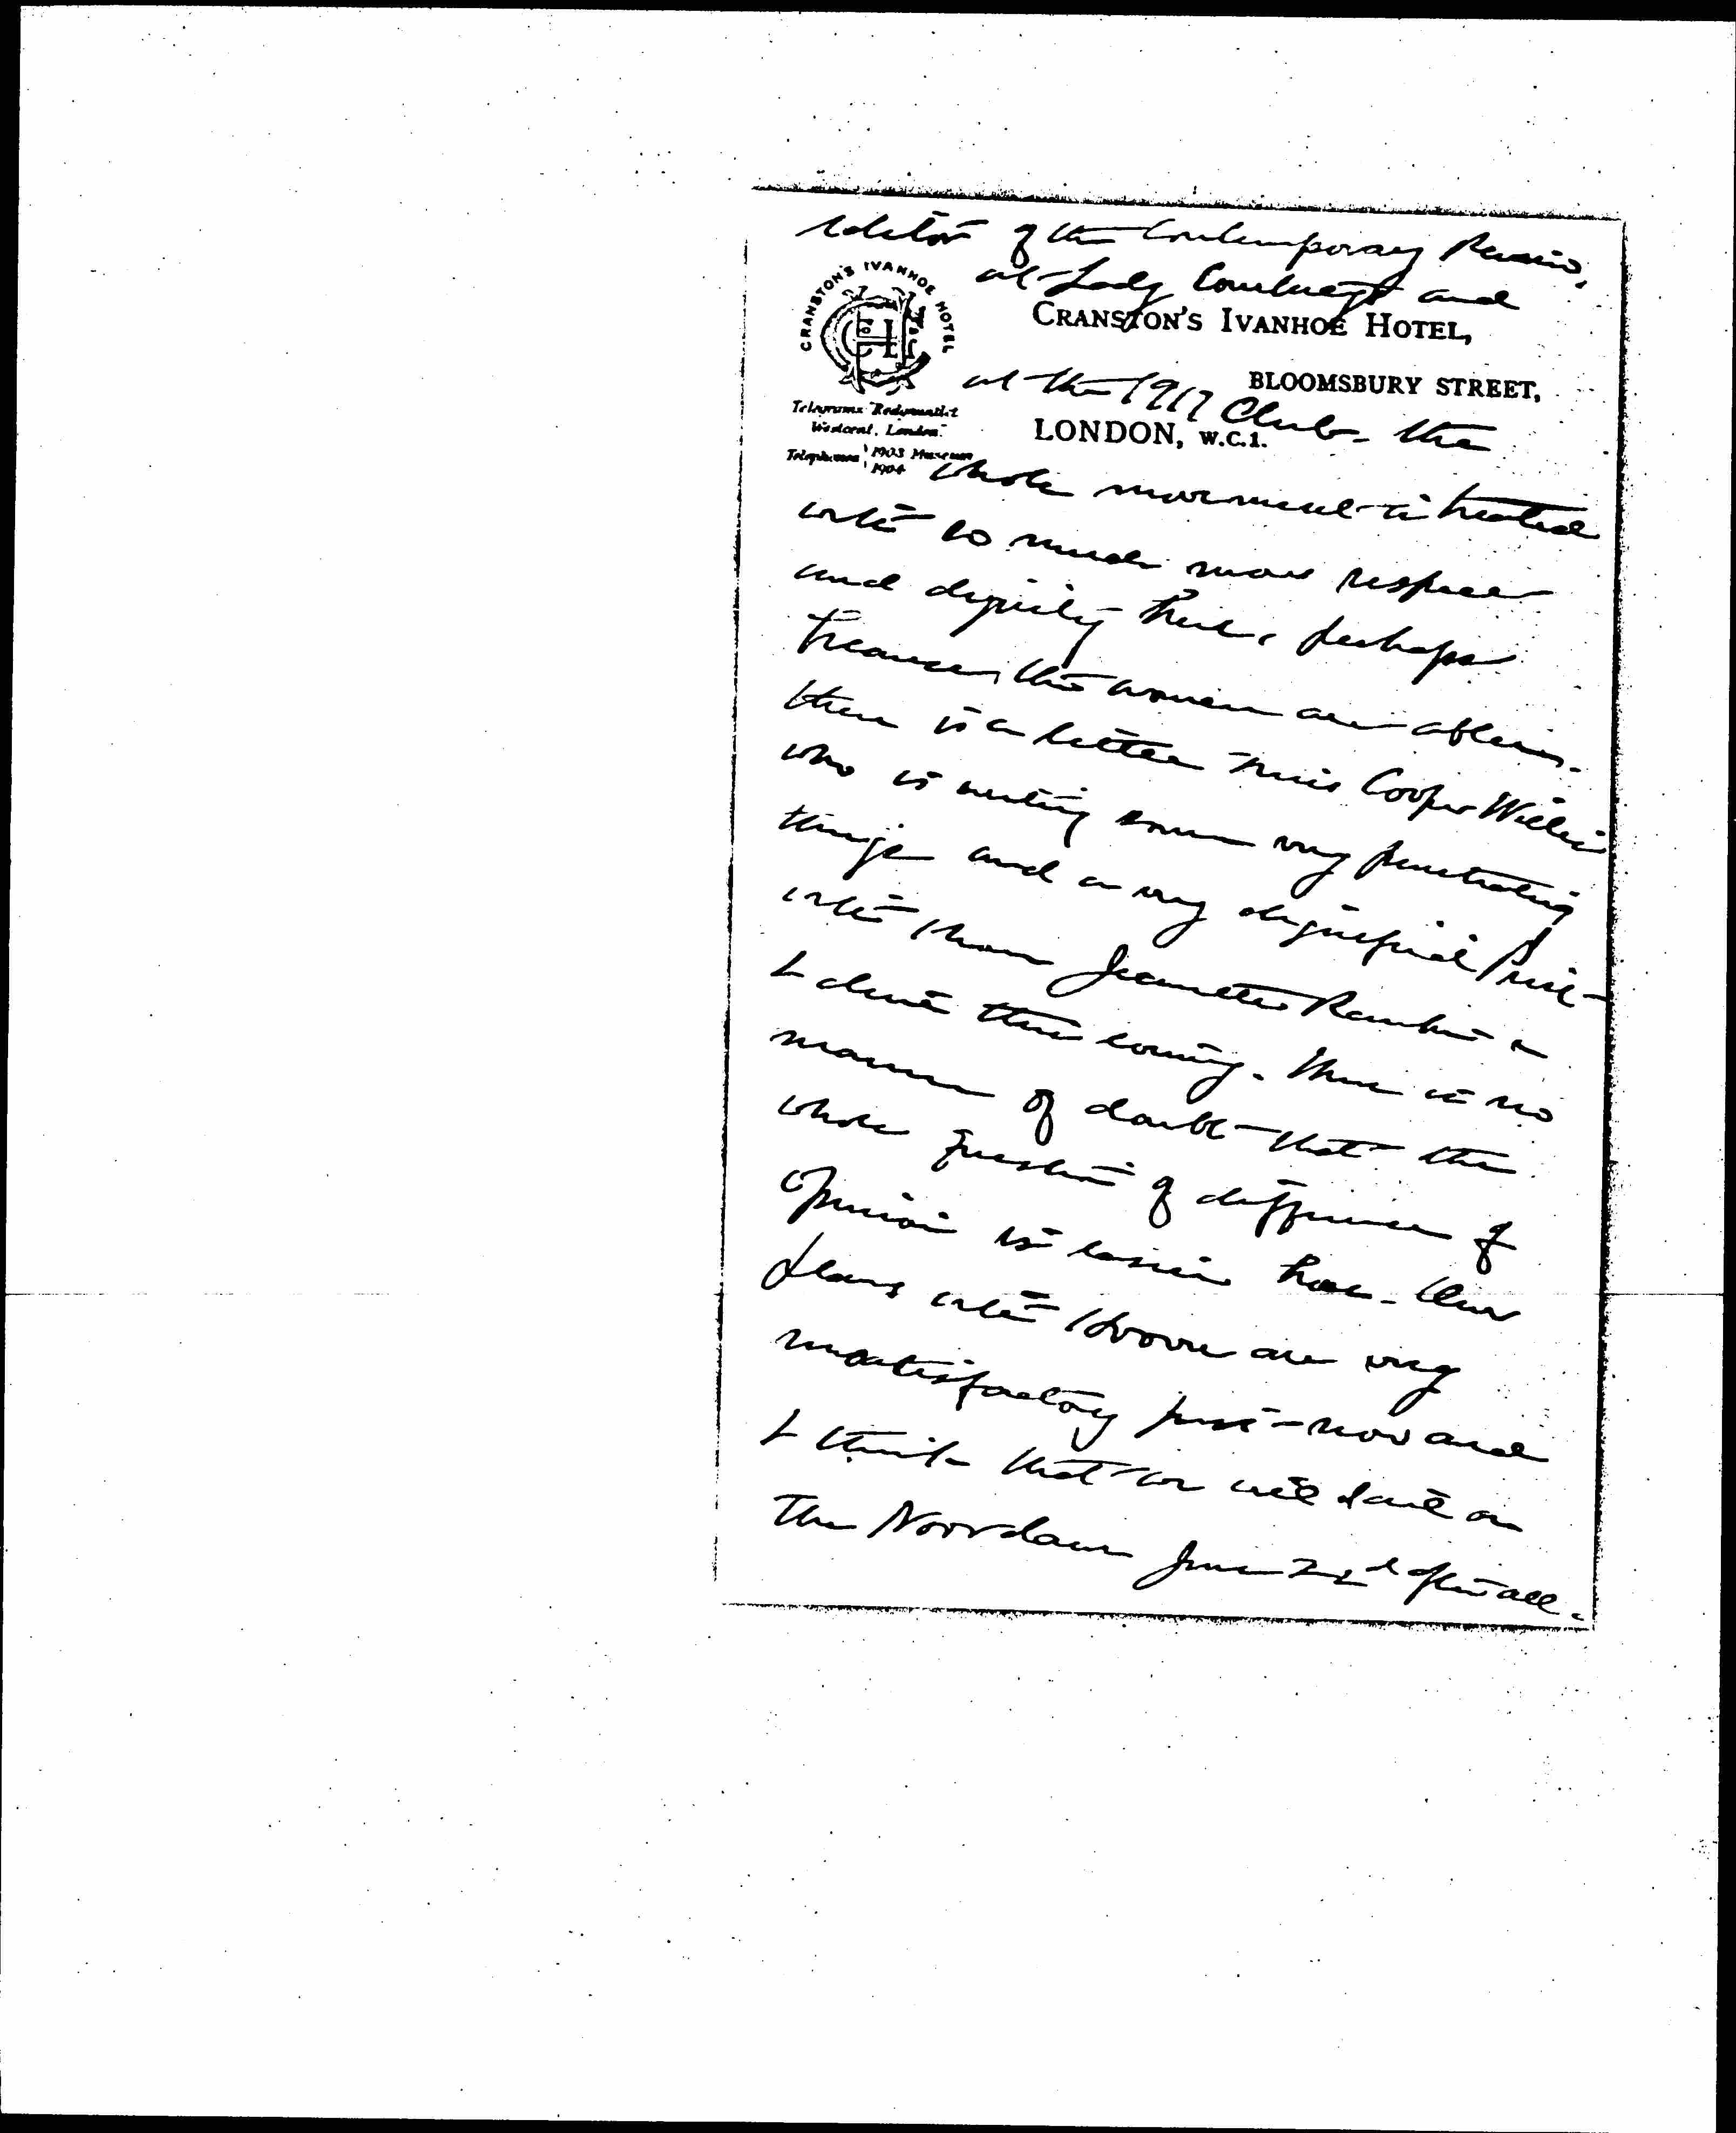 editor of the Contemporary Review,
CRANSTON'S IVANHOE HOTEL
at Lady Courtney's and
CRANSTON'S IVANHOE HOTEL,
BLOOMSBURY STREET,
at the 1917 Club - the
LONDON, W.C.1.
Telegrams
Westcent, London."
Telephones 1903 Museum
1904
whole movement is treated
with so much more respect
and dignity here, perhaps
because the women are abler.
there is a little Miss Cooper Willis
who is writing some very penetrating
things and a very dignified
with whom Jeannette Rankin &
I dined this evening. There is no
manner of doubt that the
whole question of difference of
opinion is easier here. Our
plans with Hoover are very
unsatisfactory just now and
I think that we will sail on
The Noordam June 22d after all.